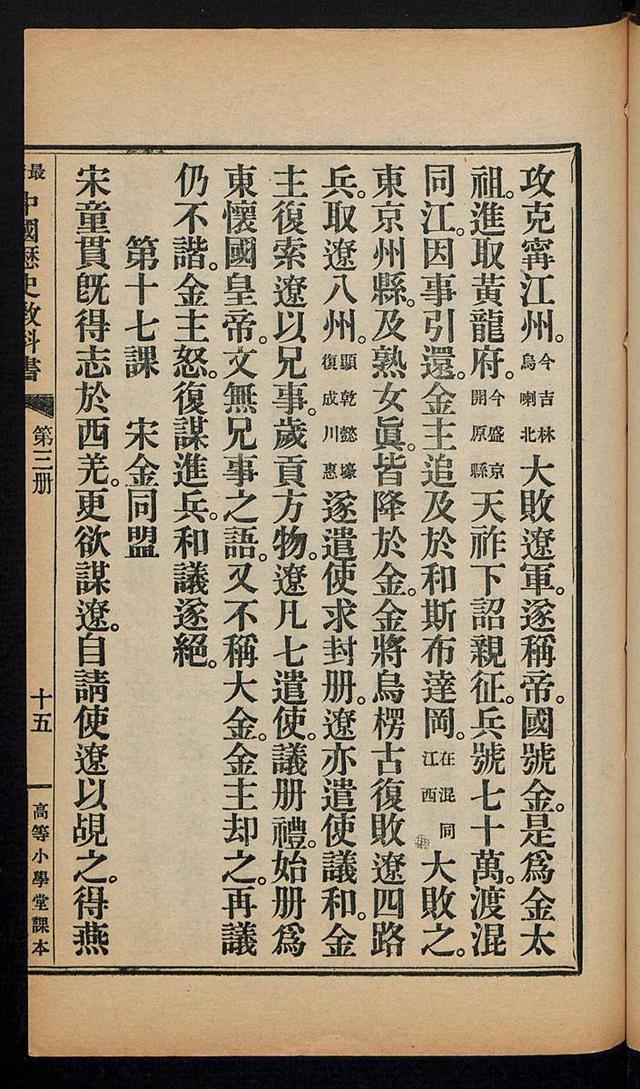 攻克甯江州。今吉林烏喇北大敗遼軍。遂稱帝。國號金。是爲金太
祖。進取黃龍府。今盛京開原縣天祚下詔親征。兵號七十萬。渡混
同江。因事引還。金主追及於和斯布達岡。在混同江西大敗之。
東京州縣。及熟女眞。皆降於金。金將烏楞古復敗遼四路
兵。取遼八州。顯乾懿壕復成川惠遂遣使求封册。遼亦遣使議和。金
主復索遼以兄事。歲貢方物。遼凡七遣使。議册禮。始册爲
東懷國皇帝。文無兄事之語。又不稱大金。金主却之。再議
仍不諧。金主怒。復謀進兵。和議遂絕。
第十七課　宋金同盟
宋童貫旣得志於西羌。更欲謀遼。自請使遼以覘之。得燕
最中國歷史敎科書　第三册　十五　高等小學堂課本